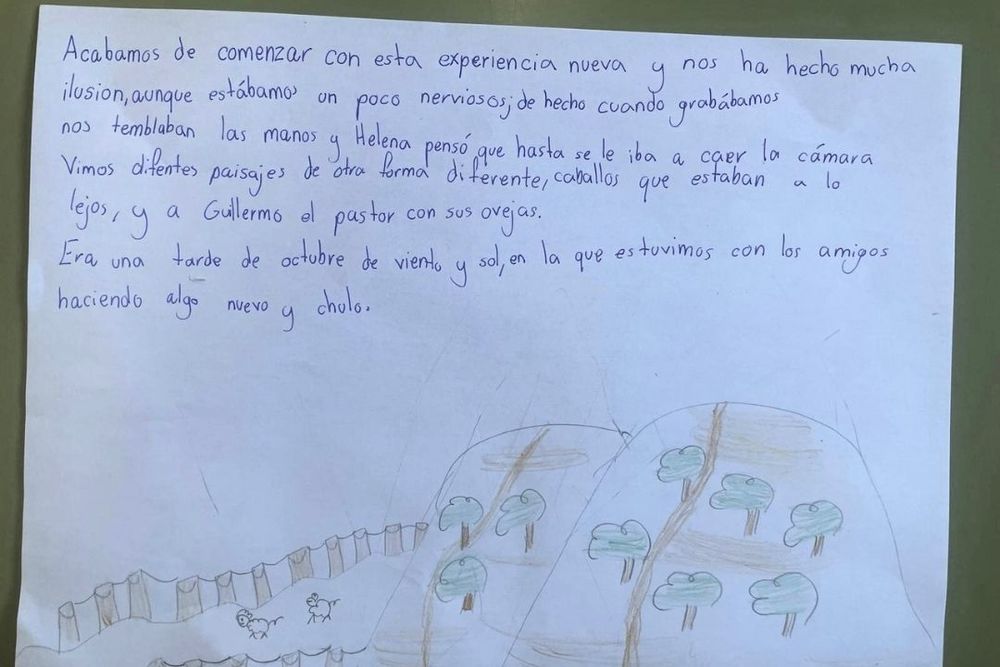 Acabamos de comenzar con esta experiencia nueva y nos ha hecho mucha
ilusion, aunque estábamos un poco nerviosos; de hecho cuando grabábamos
nos temblaban las manos y Helena pensó que hasta se le iba a caer la cámara
Vimos difentes paisajes de otra forma diferente, caballos que estaban a lo
lejos, y a Guillermo el pastor con sus ovejas.
Era una tarde de octubre de viento y sol, en la que estuvimos con los amigos
haciendo algo nuevo y chulo.